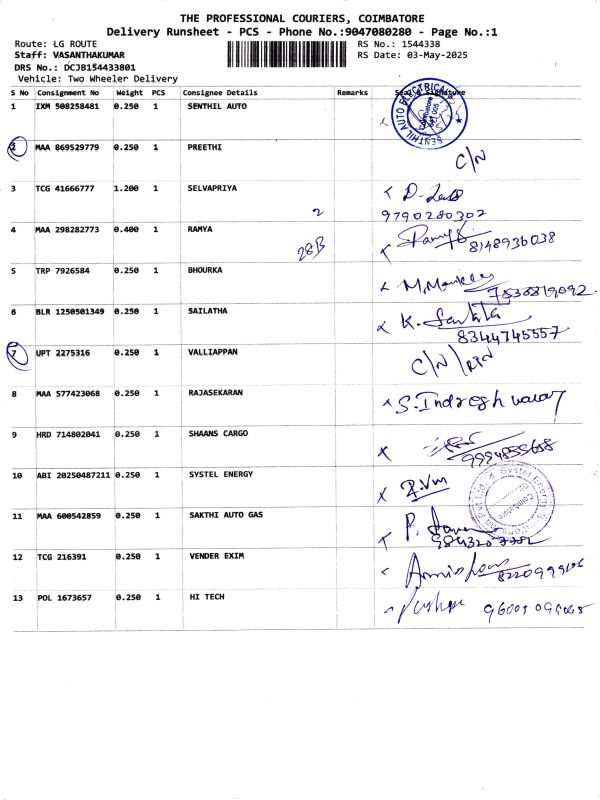 THE PROFESSIONAL COURIERS, COIMBATORE
Delivery Runsheet - PCS - Phone No.:9047080280 - Page No.:1
Route: LG ROUTE RS No.: 1544338
Staff: VASANTHAKUMAR RS Date: 03-May-2025
DRS No.: DCJB154433801
Vehicle: Two Wheeler Delivery
S No Consignment No Weight PCS Consignee Details Remarks Seal & Signature
1 IXM 508258481 0.250 1 SENTHIL AUTO
SENTHIL AUTO ELECTRICAL
2 MAA 869529779 0.250 1 PREETHI C/N
3 TCG 41666777 1.200 1 SELVAPRIYA 2
9790280302
4 MAA 298282773 0.400 1 RAMYA 28B 8148936038
5 TRP 7926584 0.250 1 BHOURKA
6 BLR 1250501349 0.250 1 SAILATHA K.
8344745557
7 UPT 2275316 0.250 1 VALLIAPPAN C/N
8 MAA 577423068 0.250 1 RAJASEKARAN
9 HRD 714802041 0.250 1 SHAANS CARGO
10 ABI 20250487211 0.250 1 SYSTEL ENERGY
11 MAA 600542859 0.250 1 SAKTHI AUTO GAS
12 TCG 216391 0.250 1 VENDER EXIM
13 POL 1673657 0.250 1 HI TECH